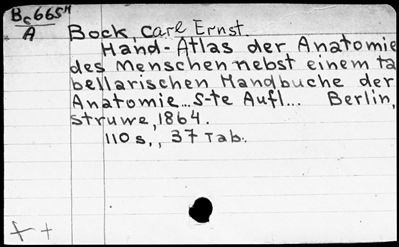 Bc665H
A
Bock, Carl Ernst.
Hand-Atlas der Anatomie
des Menschen nebst einem ta
bellarischen Handbuche der
Anatomie... 5-te Aufl... Berlin,
struwe, 1864.
110 s., 37 Tab.